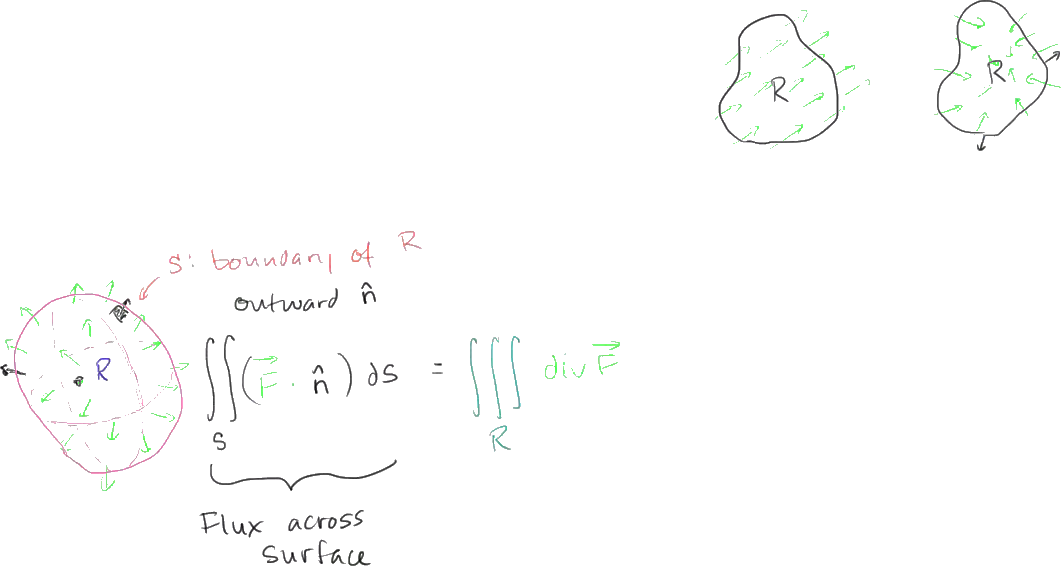 R R
S: boundary of R
outward n̂
R
∬_S (F⃗ · n̂) dS = ∭_R div F⃗
Flux across
surface